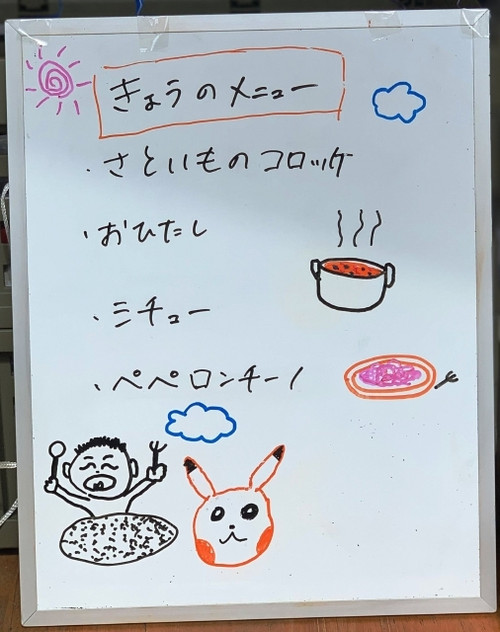 きょうのメニュー
・さといものコロッケ
・おひたし
・ミチュー
・ペペロンチーノ